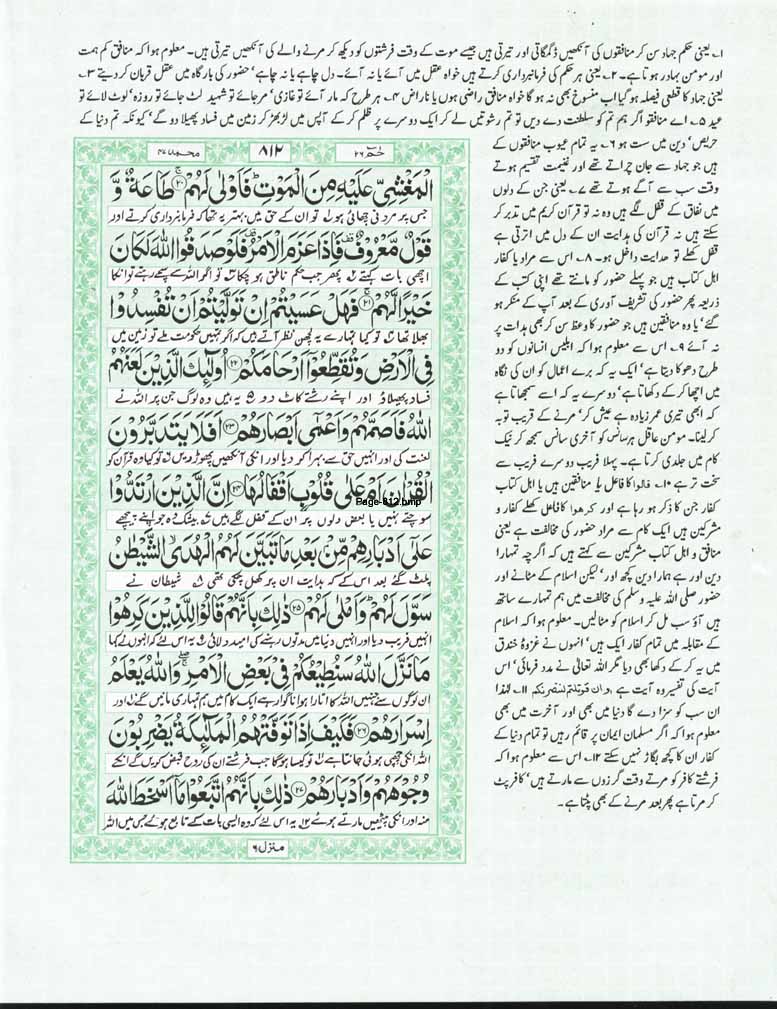 ۱۔ یعنی حکم جہاد سن کر منافقوں کی آنکھیں ڈگمگاتی اور تیرتی ہیں جیسے موت کے وقت فرشتوں کو دیکھ کر مرنے والے کی آنکھیں تیرتی ہیں۔ معلوم ہوا کہ منافق کم ہمت
اور مومن بہادر ہوتا ہے۔ ۲۔ یعنی ہر حکم کی فرمانبرداری کرتے ہیں خواہ عقل میں آئے یا نہ آئے۔ دل چاہے یا نہ چاہے' حضور کی بارگاہ میں عقل قربان کر دیتے ۳۔
یعنی جہاد کا قطعی فیصلہ ہو گیا اب منسوخ بھی نہ ہو گا خواہ منافق راضی ہوں یا ناراض ۴۔ ہر طرح کہ مار آئے تو غازی' مر جائے تو شہید لٹ جائے تو روزہ' لوٹ لائے تو
عید ۵۔ اے منافقو اگر ہم تم کو سلطنت دے دیں تو تم رشوتیں لے کر ایک دوسرے پر ظلم کر کے آپس میں لڑبھڑ کر زمین میں فساد پھیلا دو گے' کیونکہ تم دنیا کے
حریص' دین میں ست ہو ۶۔ یہ تمام عیوب منافقوں کے
ہیں جو جہاد سے جان چراتے تھے اور غنیمت تقسیم ہوتے
وقت سب سے آگے ہوتے تھے ۷۔ یعنی جن کے دلوں
میں نفاق کے قفل لگے ہیں وہ نہ تو قرآن کریم میں تدبر کر
سکتے ہیں نہ قرآن کی ہدایت ان کے دل میں اترتی ہے
قفل کھلے تو ہدایت داخل ہو۔ ۸۔ اس سے مراد یا کفار
اہل کتاب ہیں جو پہلے حضور کو مانتے تھے اپنی کتب کے
ذریعہ پھر حضور کی تشریف آوری کے بعد آپ کے منکر ہو
گئے' یا وہ منافقین ہیں جو حضور کا وعظ سن کر بھی ہدایت پر
نہ آئے ۹۔ اس سے معلوم ہوا کہ ابلیس انسانوں کو دو
طرح دھوکا دیتا ہے' ایک یہ کہ برے اعمال کو ان کی نگاہ
میں اچھا کر کے دکھاتا ہے' دوسرے یہ کہ اسے سمجھاتا ہے
کہ ابھی تیری عمر زیادہ ہے عیش کر' مرنے کے قریب توبہ
کر لینا۔ مومن عاقل ہر سانس کو آخری سانس سمجھ کر نیک
کام میں جلدی کرتا ہے۔ پہلا فریب دوسرے فریب سے
سخت تر ہے ۱۰۔ قالوا کا فاعل یا منافقین ہیں یا اہل کتاب
کفار جن کا ذکر ہو رہا ہے اور کرھوا کا فاعل کھلے کفار و
مشرکین ہیں ایک کام سے مراد حضور کی مخالفت ہے یعنی
منافق و اہل کتاب مشرکین سے کہتے ہیں کہ اگرچہ تمہارا
دین اور ہے ہمارا دین کچھ اور' لیکن اسلام کے مٹانے اور
حضور صلی اللہ علیہ وسلم کی مخالفت میں ہم تمہارے ساتھ
ہیں آؤ سب مل کر اسلام کو مٹالیں۔ معلوم ہوا کہ اسلام
کے مقابلہ میں تمام کفار ایک ہیں' انہوں نے غزوۂ خندق
میں یہ کر کے دکھا بھی دیا مگر اللہ تعالیٰ نے مدد فرمائی' اس
آیت کی تفسیر وہ آیت ہے وان قوتلتم لننصرنکم ۱۱۔ لہٰذا
ان سب کو سزا دے گا دنیا میں بھی اور آخرت میں بھی
معلوم ہوا کہ اگر مسلمان ایمان پر قائم رہیں تو تمام دنیا کے
کفار ان کا کچھ بگاڑ نہیں سکتے ۱۲۔ اس سے معلوم ہوا کہ
فرشتے کافر کو مرتے وقت گرزوں سے مارتے ہیں' کافر پٹ
کر مرتا ہے پھر بعد مرنے کے بھی پٹتا ہے۔
حٰمٓ ۲۶ ۸۱۲ محمد ۴۷
الْمَغْشِیِّ عَلَیْهِ مِنَ الْمَوْتِ ؕ فَاَوْلٰی لَهُمْ ۚ۲۰ طَاعَةٌ وَّ
جس پر مردنی چھائی ہو ۱ تو ان کے حق میں بہتر یہ تھا کہ فرمانبرداری کرتے اور
قَوْلٌ مَّعْرُوْفٌ ۫ فَاِذَا عَزَمَ الْاَمْرُ ۫ فَلَوْ صَدَقُوا اللّٰهَ لَكَانَ
اچھی بات کہتے ۲ پھر جب حکم ناطق ہو چکا ۳ تو اگر اللہ سے سچے رہتے تو انکا
خَیْرًا لَّهُمْ ۚ۲۱ فَهَلْ عَسَیْتُمْ اِنْ تَوَلَّیْتُمْ اَنْ تُفْسِدُوْا
بھلا تھا ۴ تو کیا تمہارے یہ لچھن نظر آتے ہیں کہ اگر تمہیں حکومت ملے تو زمین میں
فِی الْاَرْضِ وَ تُقَطِّعُوْۤا اَرْحَامَكُمْ ۲۲ اُولٰٓئِكَ الَّذِیْنَ لَعَنَهُمُ
فساد پھیلاؤ اور اپنے رشتے کاٹ دو ۵ یہ ہیں وہ لوگ جن پر اللہ نے
اللّٰهُ فَاَصَمَّهُمْ وَ اَعْمٰۤی اَبْصَارَهُمْ ۲۳ اَفَلَا یَتَدَبَّرُوْنَ
لعنت کی اور انہیں حق سے بہرا کر دیا اور انکی آنکھیں پھوڑ دیں ۶ تو کیا وہ قرآن کو
الْقُرْاٰنَ اَمْ عَلٰی قُلُوْبٍ اَقْفَالُهَا ۲۴ اِنَّ الَّذِیْنَ ارْتَدُّوْا
Page-812.bmp
سوچتے نہیں یا بعض دلوں پر ان کے قفل لگے ہیں ۷ بیشک وہ جو اپنے پیچھے
عَلٰۤی اَدْبَارِهِمْ مِّنْۢ بَعْدِ مَا تَبَیَّنَ لَهُمُ الْهُدَی ۙ الشَّیْطٰنُ
پلٹ گئے بعد اس کے کہ ہدایت ان پر کھل چکی تھی ۸ شیطان نے
سَوَّلَ لَهُمْ ؕ وَ اَمْلٰی لَهُمْ ۲۵ ذٰلِكَ بِاَنَّهُمْ قَالُوْا لِلَّذِیْنَ كَرِهُوْا
انہیں فریب دیا اور انہیں دنیا میں مدتوں رہنے کی امید دلائی ۹ یہ اس لئے کہ انہوں نے کہا
مَا نَزَّلَ اللّٰهُ سَنُطِیْعُكُمْ فِیْ بَعْضِ الْاَمْرِ ۖۚ وَ اللّٰهُ یَعْلَمُ
ان لوگوں سے جنہیں اللہ کا اتارا ہوا ناگوار ہے ایک کام میں ہم تمہاری مانیں گے ۱۰ اور
اِسْرَارَهُمْ ۲۶ فَكَیْفَ اِذَا تَوَفَّتْهُمُ الْمَلٰٓئِكَةُ یَضْرِبُوْنَ
اللہ انکی چھپی ہوئی جانتا ہے ۱۱ تو کیسا ہو گا جب فرشتے ان کی روح قبض کریں گے انکے
وُجُوْهَهُمْ وَ اَدْبَارَهُمْ ۲۷ ذٰلِكَ بِاَنَّهُمُ اتَّبَعُوْا مَاۤ اَسْخَطَ اللّٰهَ
منہ اور انکی پیٹھیں مارتے ہوئے ۱۲ یہ اس لئے کہ وہ ایسی بات کے تابع ہوئے جس میں اللہ
منزل ۶